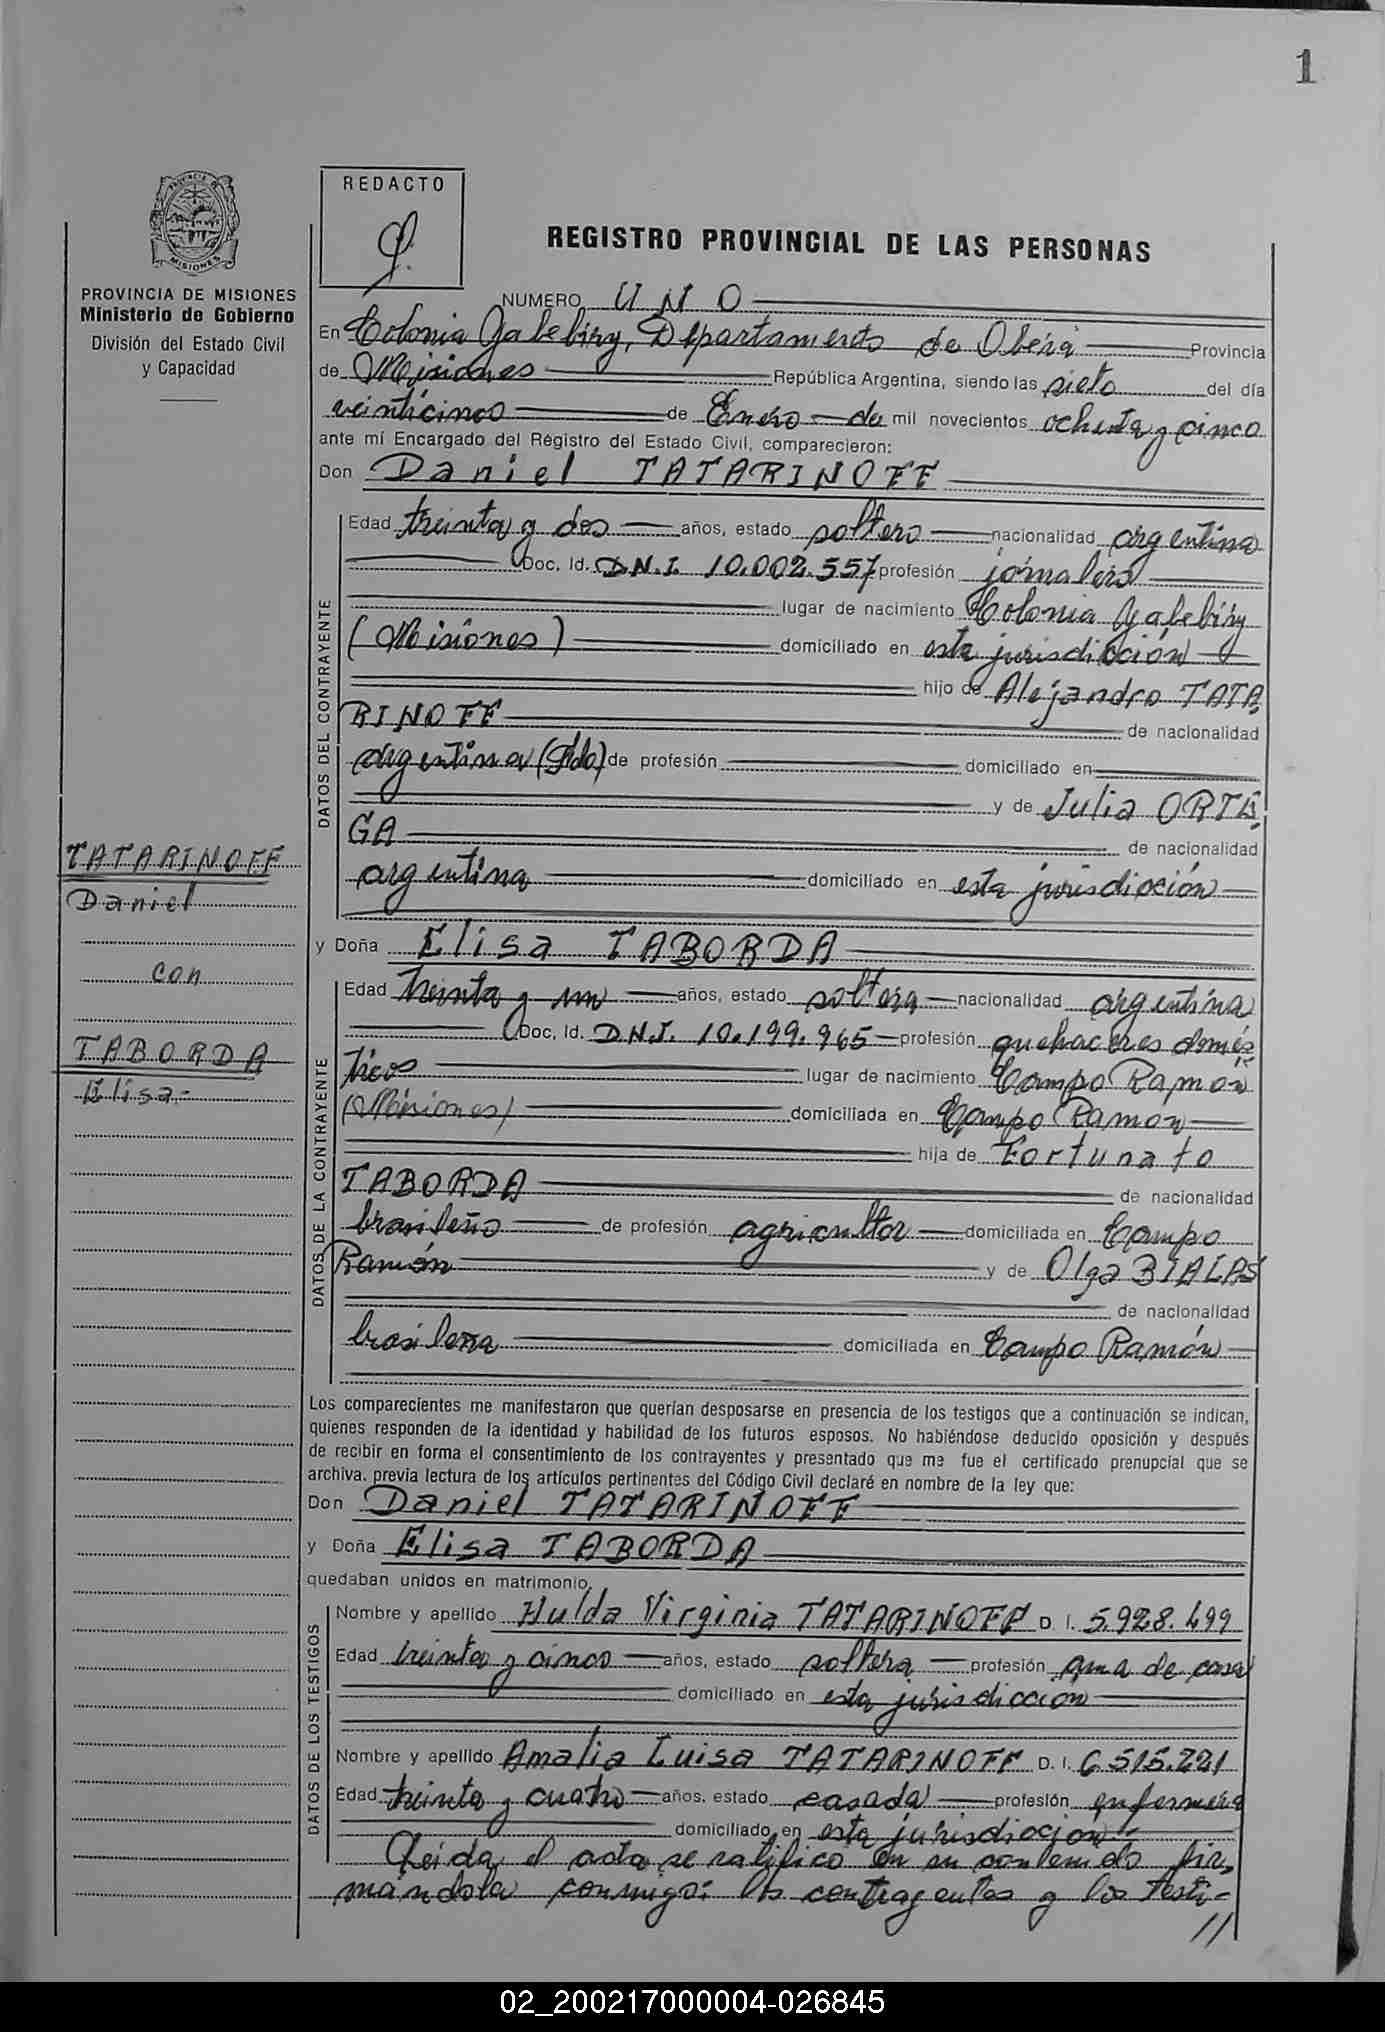 1
REDACTO
PROVINCIA DE MISIONES
MISIONES
PROVINCIA DE MISIONES
Ministerio de Gobierno
División del Estado Civil
y Capacidad
TATARINOFF
Daniel
con
TABORDA
Elisa.-
REGISTRO PROVINCIAL DE LAS PERSONAS
NUMERO UNO
En Colonia Yabebiry, Departamento de Oberá Provincia
de Misiones República Argentina, siendo las siete del día
veinticinco de Enero de mil novecientos ochenta y cinco
ante mí Encargado del Registro del Estado Civil, comparecieron:
Don Daniel TATARINOFF
DATOS DEL CONTRAYENTE
Edad treinta y dos años, estado soltero nacionalidad argentina
Doc. Id. D.N.I. 10.002.557 profesión jornalero
lugar de nacimiento Colonia Yabebiry
(Misiones) domiciliado en esta jurisdicción
hijo de Alejandro TATA
RINOFF de nacionalidad
argentina (Fdo) de profesión domiciliado en
y de Julia ORTE
GA de nacionalidad
argentina domiciliado en esta jurisdicción
y Doña Elisa TABORDA
DATOS DE LA CONTRAYENTE
Edad treinta y un años, estado soltera nacionalidad argentina
Doc. Id. D.N.I. 10.199.965 profesión quehaceres domés
ticos lugar de nacimiento Campo Ramon
(Misiones) domiciliada en Campo Ramon
hija de Fortunato
TABORDA de nacionalidad
brasileño de profesión agricultor domiciliada en Campo
Ramón y de Olga BIALAS
de nacionalidad
brasilena domiciliada en Campo Ramón
Los comparecientes me manifestaron que querían desposarse en presencia de los testigos que a continuación se indican,
quienes responden de la identidad y habilidad de los futuros esposos. No habiéndose deducido oposición y después
de recibir en forma el consentimiento de los contrayentes y presentado que me fue el certificado prenupcial que se
archiva, previa lectura de los artículos pertinentes del Código Civil declaré en nombre de la ley que:
Don Daniel TATARINOFF
y Doña Elisa TABORDA
quedaban unidos en matrimonio.
DATOS DE LOS TESTIGOS
Nombre y apellido Hulda Virginia TATARINOFF D. I. 5.928.499
Edad treinta y cinco años, estado soltera profesión ama de casa
domiciliado en esta jurisdicción
Nombre y apellido Amalia Luisa TATARINOFF D. I. 6.515.221
Edad treinta y cuatro años, estado casada profesión enfermera
domiciliado en esta jurisdiccion
Leida el acta se ratificó en su contenido fir,
mándola conmigo: los contrayentes y los testi-
//
02_200217000004-026845